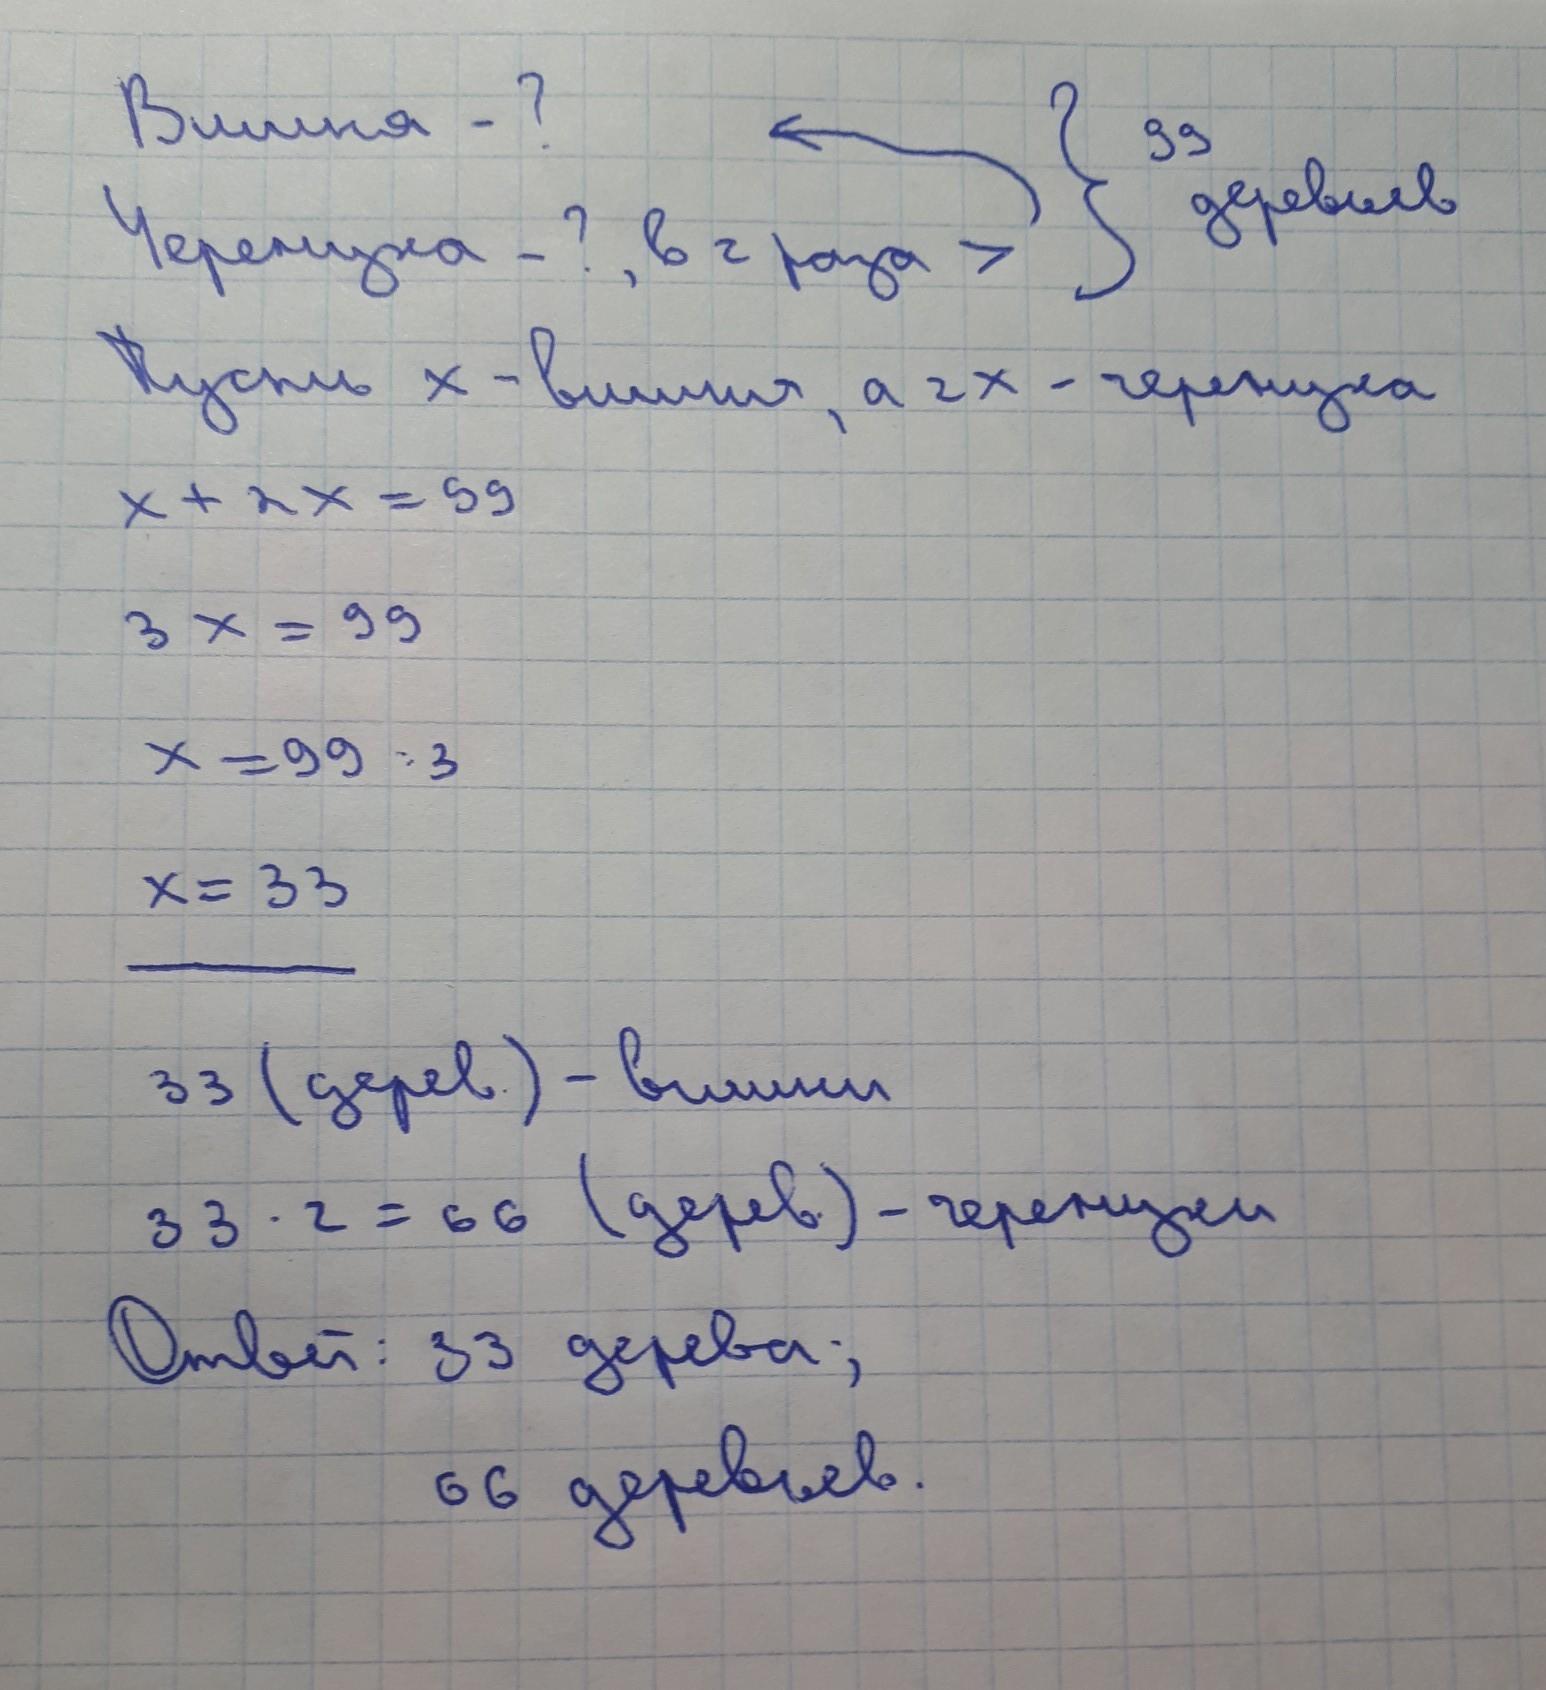 Вишня - ?
Черешня - ?, в 2 раза > } 99 деревьев
Пусть x - вишня, а 2x - черешня
x + 2x = 99
3x = 99
x = 99 : 3
x = 33
33 (дерев.) - вишни
33 · 2 = 66 (дерев.) - черешни
Ответ: 33 дерева;
66 деревьев.